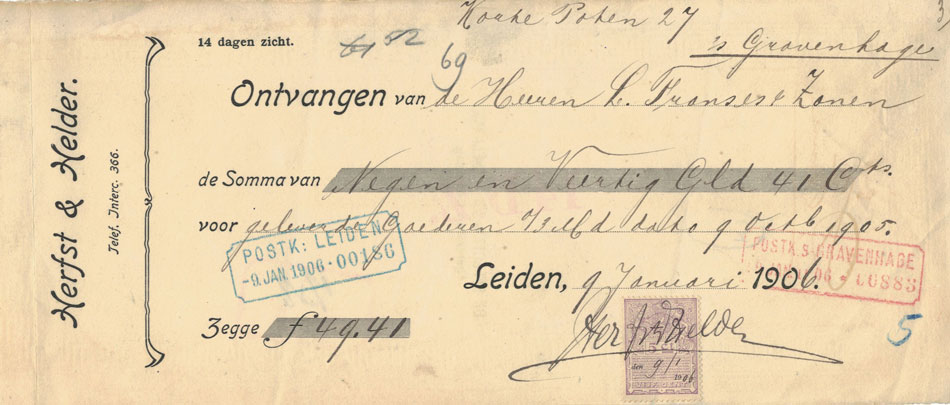 Korte Poten 27
's Gravenhage
14 dagen zicht.
61 52
69
Herfst & Helder.
Telef. Interc. 366.
Ontvangen van de Heeren L. Franses & Zonen
de Somma van Negen en Veertig Gld 41 Cts.
voor geleverde Goederen dato 9 Octb 1905.
POSTK: LEIDEN
-9.JAN.1906 · 00186
POSTK. 's GRAVENHAGE
06883
Leiden, 9 Januari 1906.
Zegge f 49.41
Herfst & Helder
den 9/1
1906
5